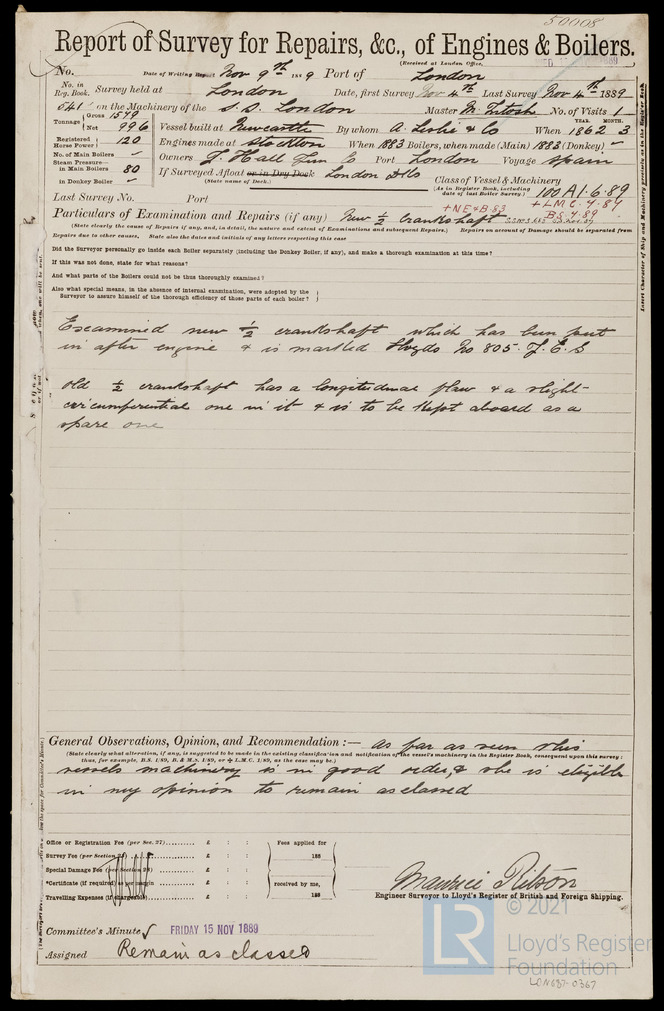 50008
Report of Survey for Repairs, &c., of Engines & Boilers.
(Received at London Office,
No. Date of Writing Report Nov 9th 1889 Port of London
No. in Reg. Book. Survey held at London Date, first Survey Nov 4th Last Survey Nov 4th 1889
541 on the Machinery of the S.S. London Master M. Intosh No. of Visits 1
Tonnage Gross 1579 YEAR. MONTH.
Net 996 Vessel built at Newcastle By whom A. Leslie & Co When 1862 3
Registered Horse Power 120 Engines made at Stockton When 1883 Boilers, when made (Main) 1883 (Donkey) –
No. of Main Boilers – Owners J. Hall Jun Co Port London Voyage Spain
Steam Pressure in Main Boilers 80 If Surveyed Afloat or in Dry Dock London Dks
(State name of Dock.)
in Donkey Boiler – Class of Vessel & Machinery
(As in Register Book, including date of last Boiler Survey.) 100 A1. 6.89
Last Survey No. Port +NE&B 83 +L.M.C. 4.87
B.S. 4.89
Particulars of Examination and Repairs (if any) New ½ crankshaft
(State clearly the cause of Repairs if any, and, in detail, the nature and extent of Examinations and subsequent Repairs.) Repairs on account of Damage should be separated from
Repairs due to other causes. State also the dates and initials of any letters respecting this case
Did the Surveyor personally go inside each Boiler separately (including the Donkey Boiler, if any), and make a thorough examination at this time?
If this was not done, state for what reasons?
And what parts of the Boilers could not be thus thoroughly examined?
Also what special means, in the absence of internal examination, were adopted by the
Surveyor to assure himself of the thorough efficiency of those parts of each boiler?
Examined new ½ crankshaft which has been put
in after engine & is marked Lloyds No 805. J.E.S
Old ½ crankshaft has a longitudinal flaw & a slight
circumferential one in it & is to be kept aboard as a
spare one
General Observations, Opinion, and Recommendation :— as far as seen this
(State clearly what alteration, if any, is suggested to be made in the existing classification and notification of the vessel's machinery in the Register Book, consequent upon this survey:
thus, for example, B.S. 1/89, B. & M.S. 1/89, or + L.M.C. 1/89, as the case may be.)
vessels machinery is in good order & she is eligible
in my opinion to remain as classed
Office or Registration Fee (per Sec. 27) £ : : Fees applied for
Survey Fee (per Section 28) £ : : 188
Special Damage Fee (per Section 28) £ : :
*Certificate (if required) as per margin £ : : received by me,
Travelling Expenses (if chargeable) £ : : 188
Maurice Pilson
Engineer Surveyor to Lloyd's Register of British and Foreign Shipping.
Committee's Minute FRIDAY 15 NOV 1889
Assigned Remain as classed
LR
© 2021
Lloyd's Register
Foundation
LON687-0367
Insert Character of Ship and Machinery precisely as in the Register Book.